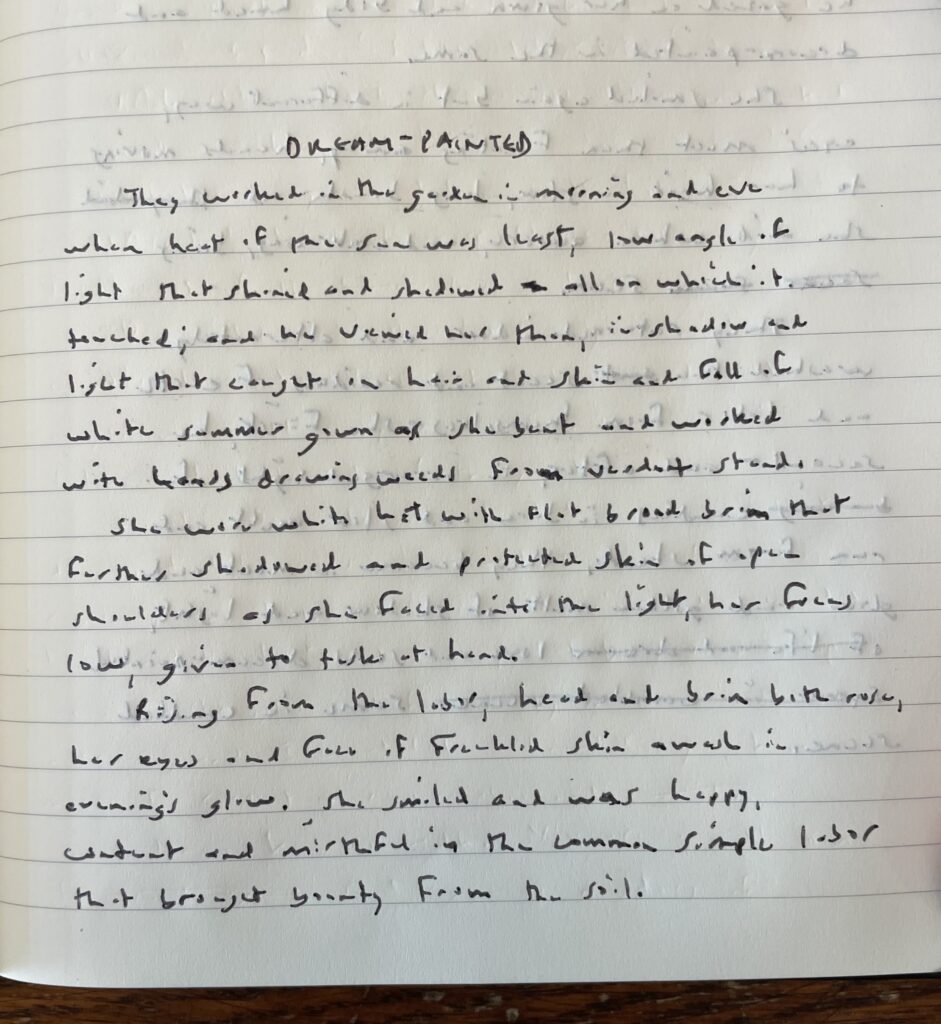 DREAM-PAINTED
They worked in the garden in morning and eve
when heat of the sun was least, low angle of
light that shined and shadowed all on which it
touched; and he viewed her then, in shadow and
light that caught in hair and skin and fall of
white summer gown as she bent and worked
with hands drawing weeds from verdant stand.
She wore white hat with flat broad brim that
further shadowed and protected skin of open
shoulders as she faced into the light, her focus
low, given to task at hand.
Rising from the labor, head and brim both rose,
her eyes and face of freckled skin awash in
evening's glow. She smiled and was happy,
content and mirthful in the common simple labor
that brought bounty from the soil.